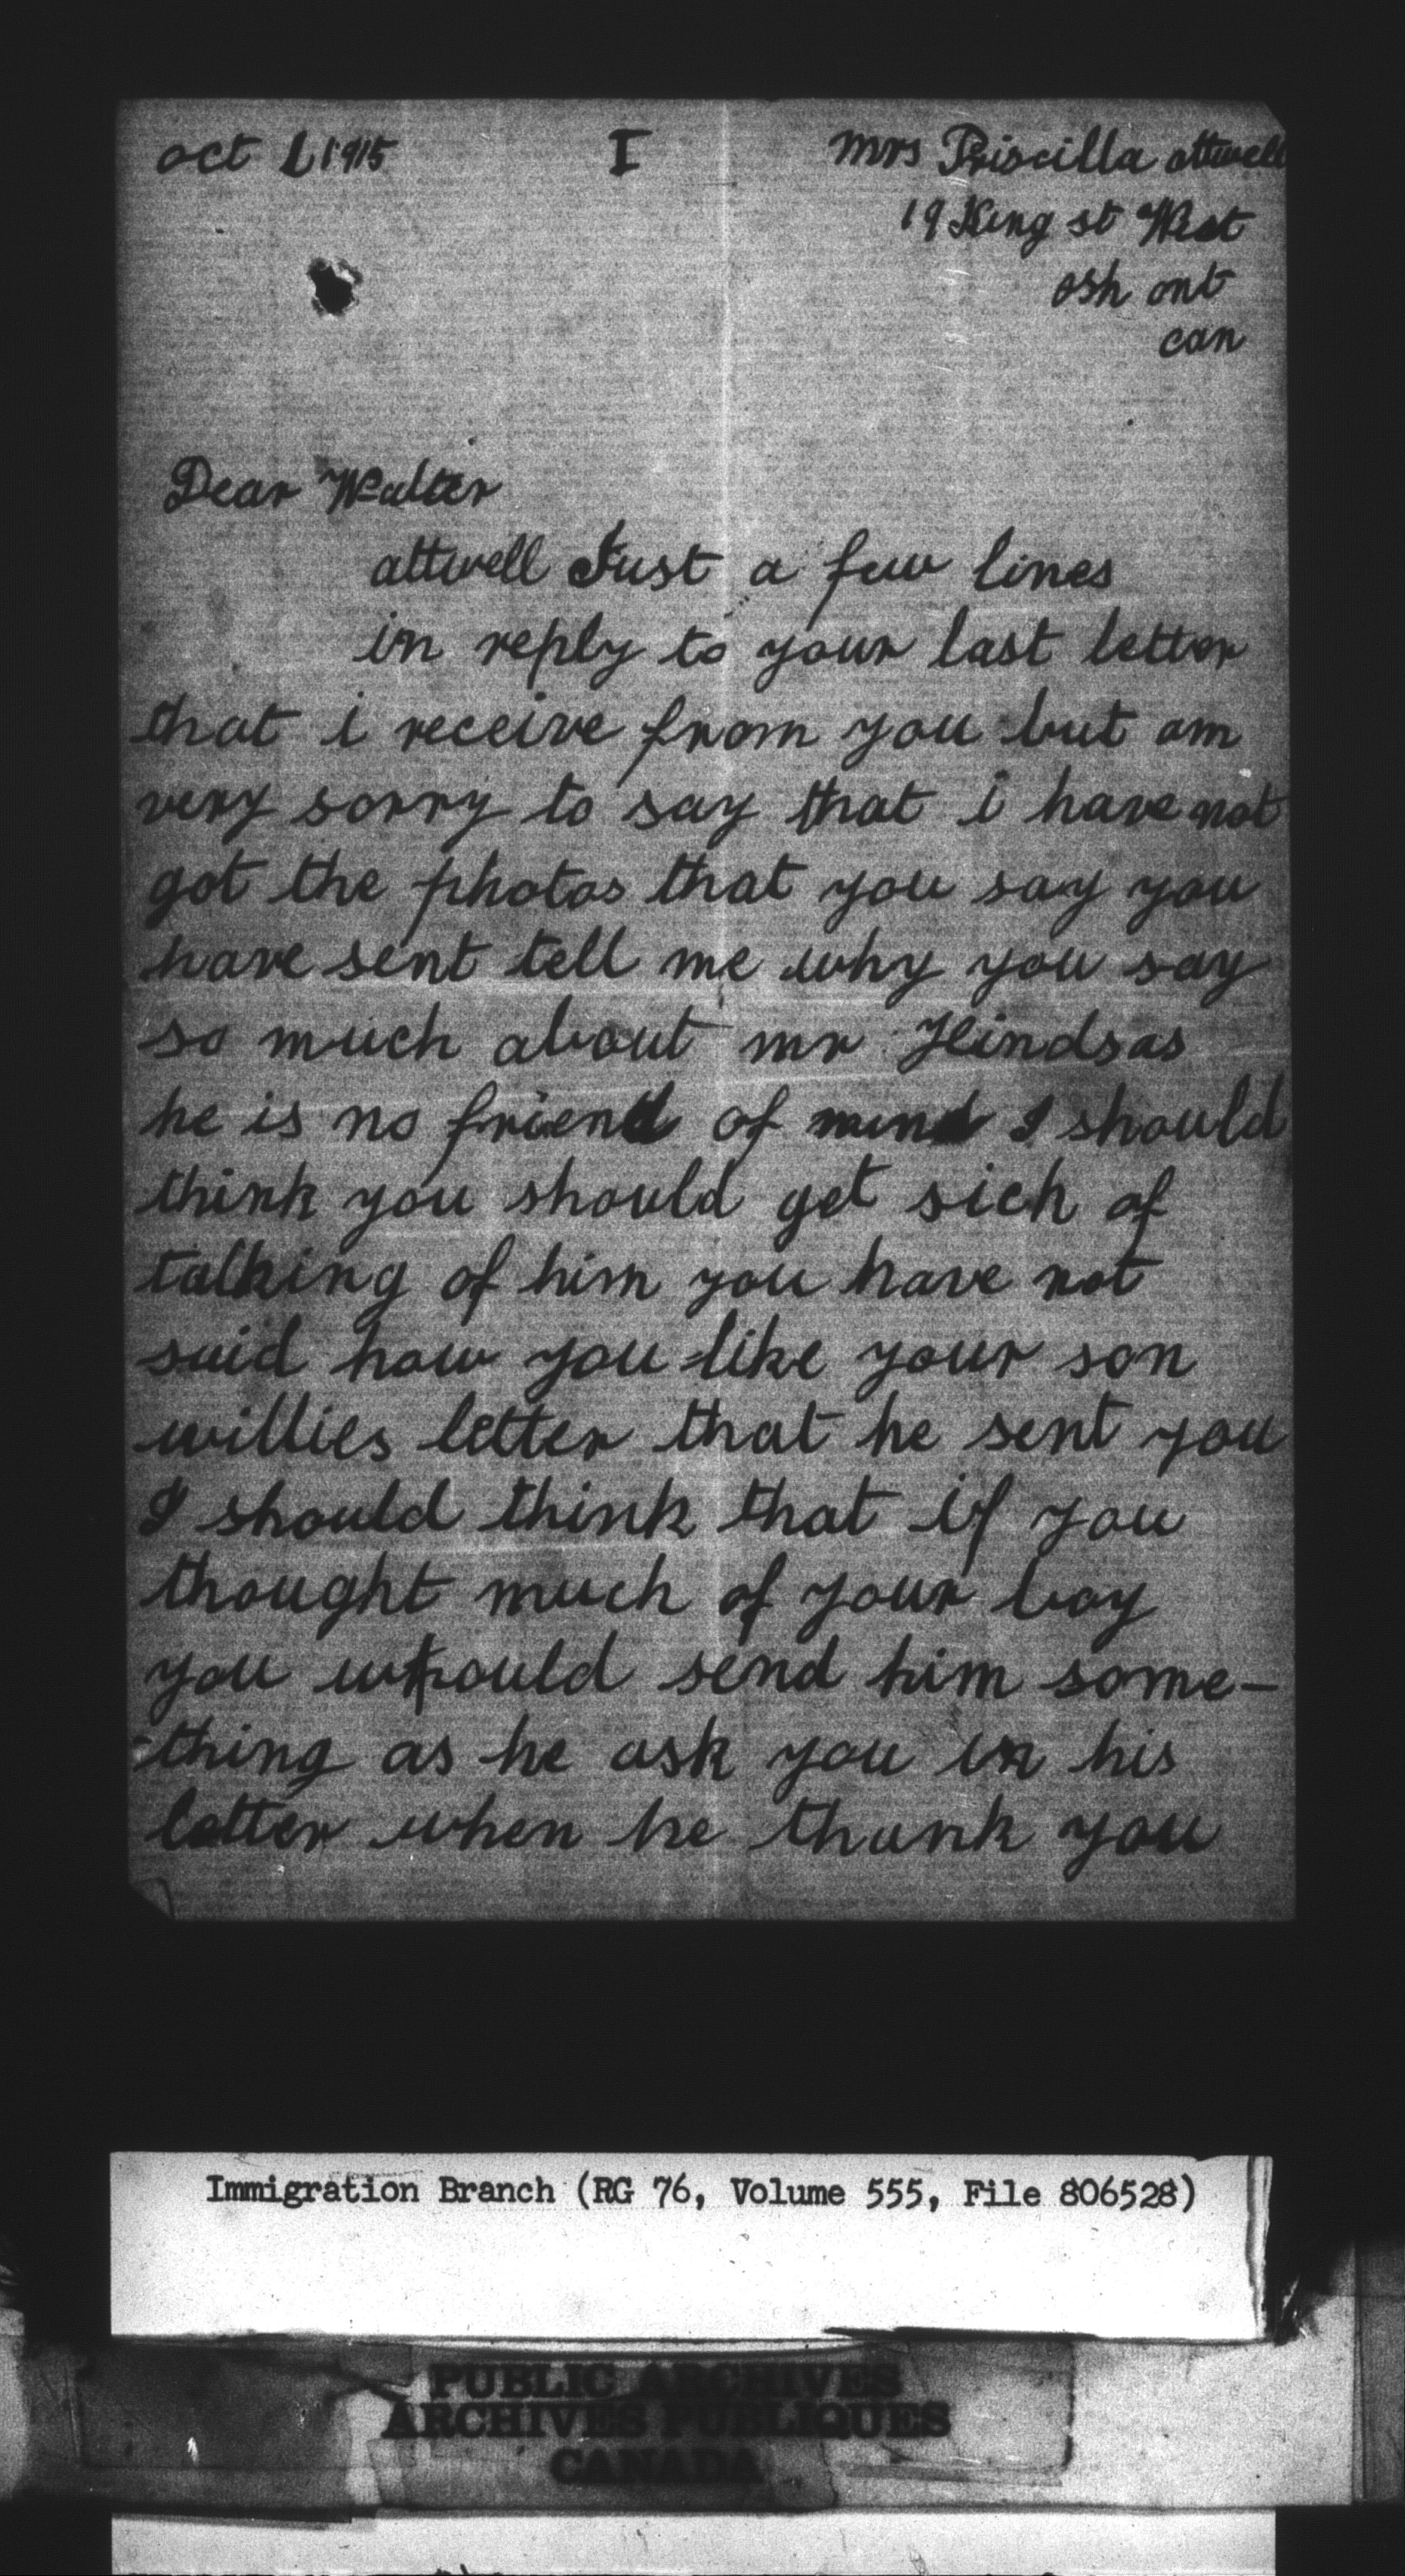 oct 1 1915 I mrs Priscilla attwell
19 King st West
osh ont
can
Dear Walter
attwell Just a few lines
in reply to your last letter
that i receive from you but am
very sorry to say that i have not
got the photos that you say you
have sent tell me why you say
so much about mr Hinds as
he is no friend of mind I should
think you should get sick of
talking of him you have not
said how you like your son
willies letter that he sent you
I should think that if you
thought much of your boy
you would send him some-
-thing as he ask you in his
letter when he thank you
Immigration Branch (RG 76, Volume 555, File 806528)
PUBLIC ARCHIVES
ARCHIVES PUBLIQUES
CANADA